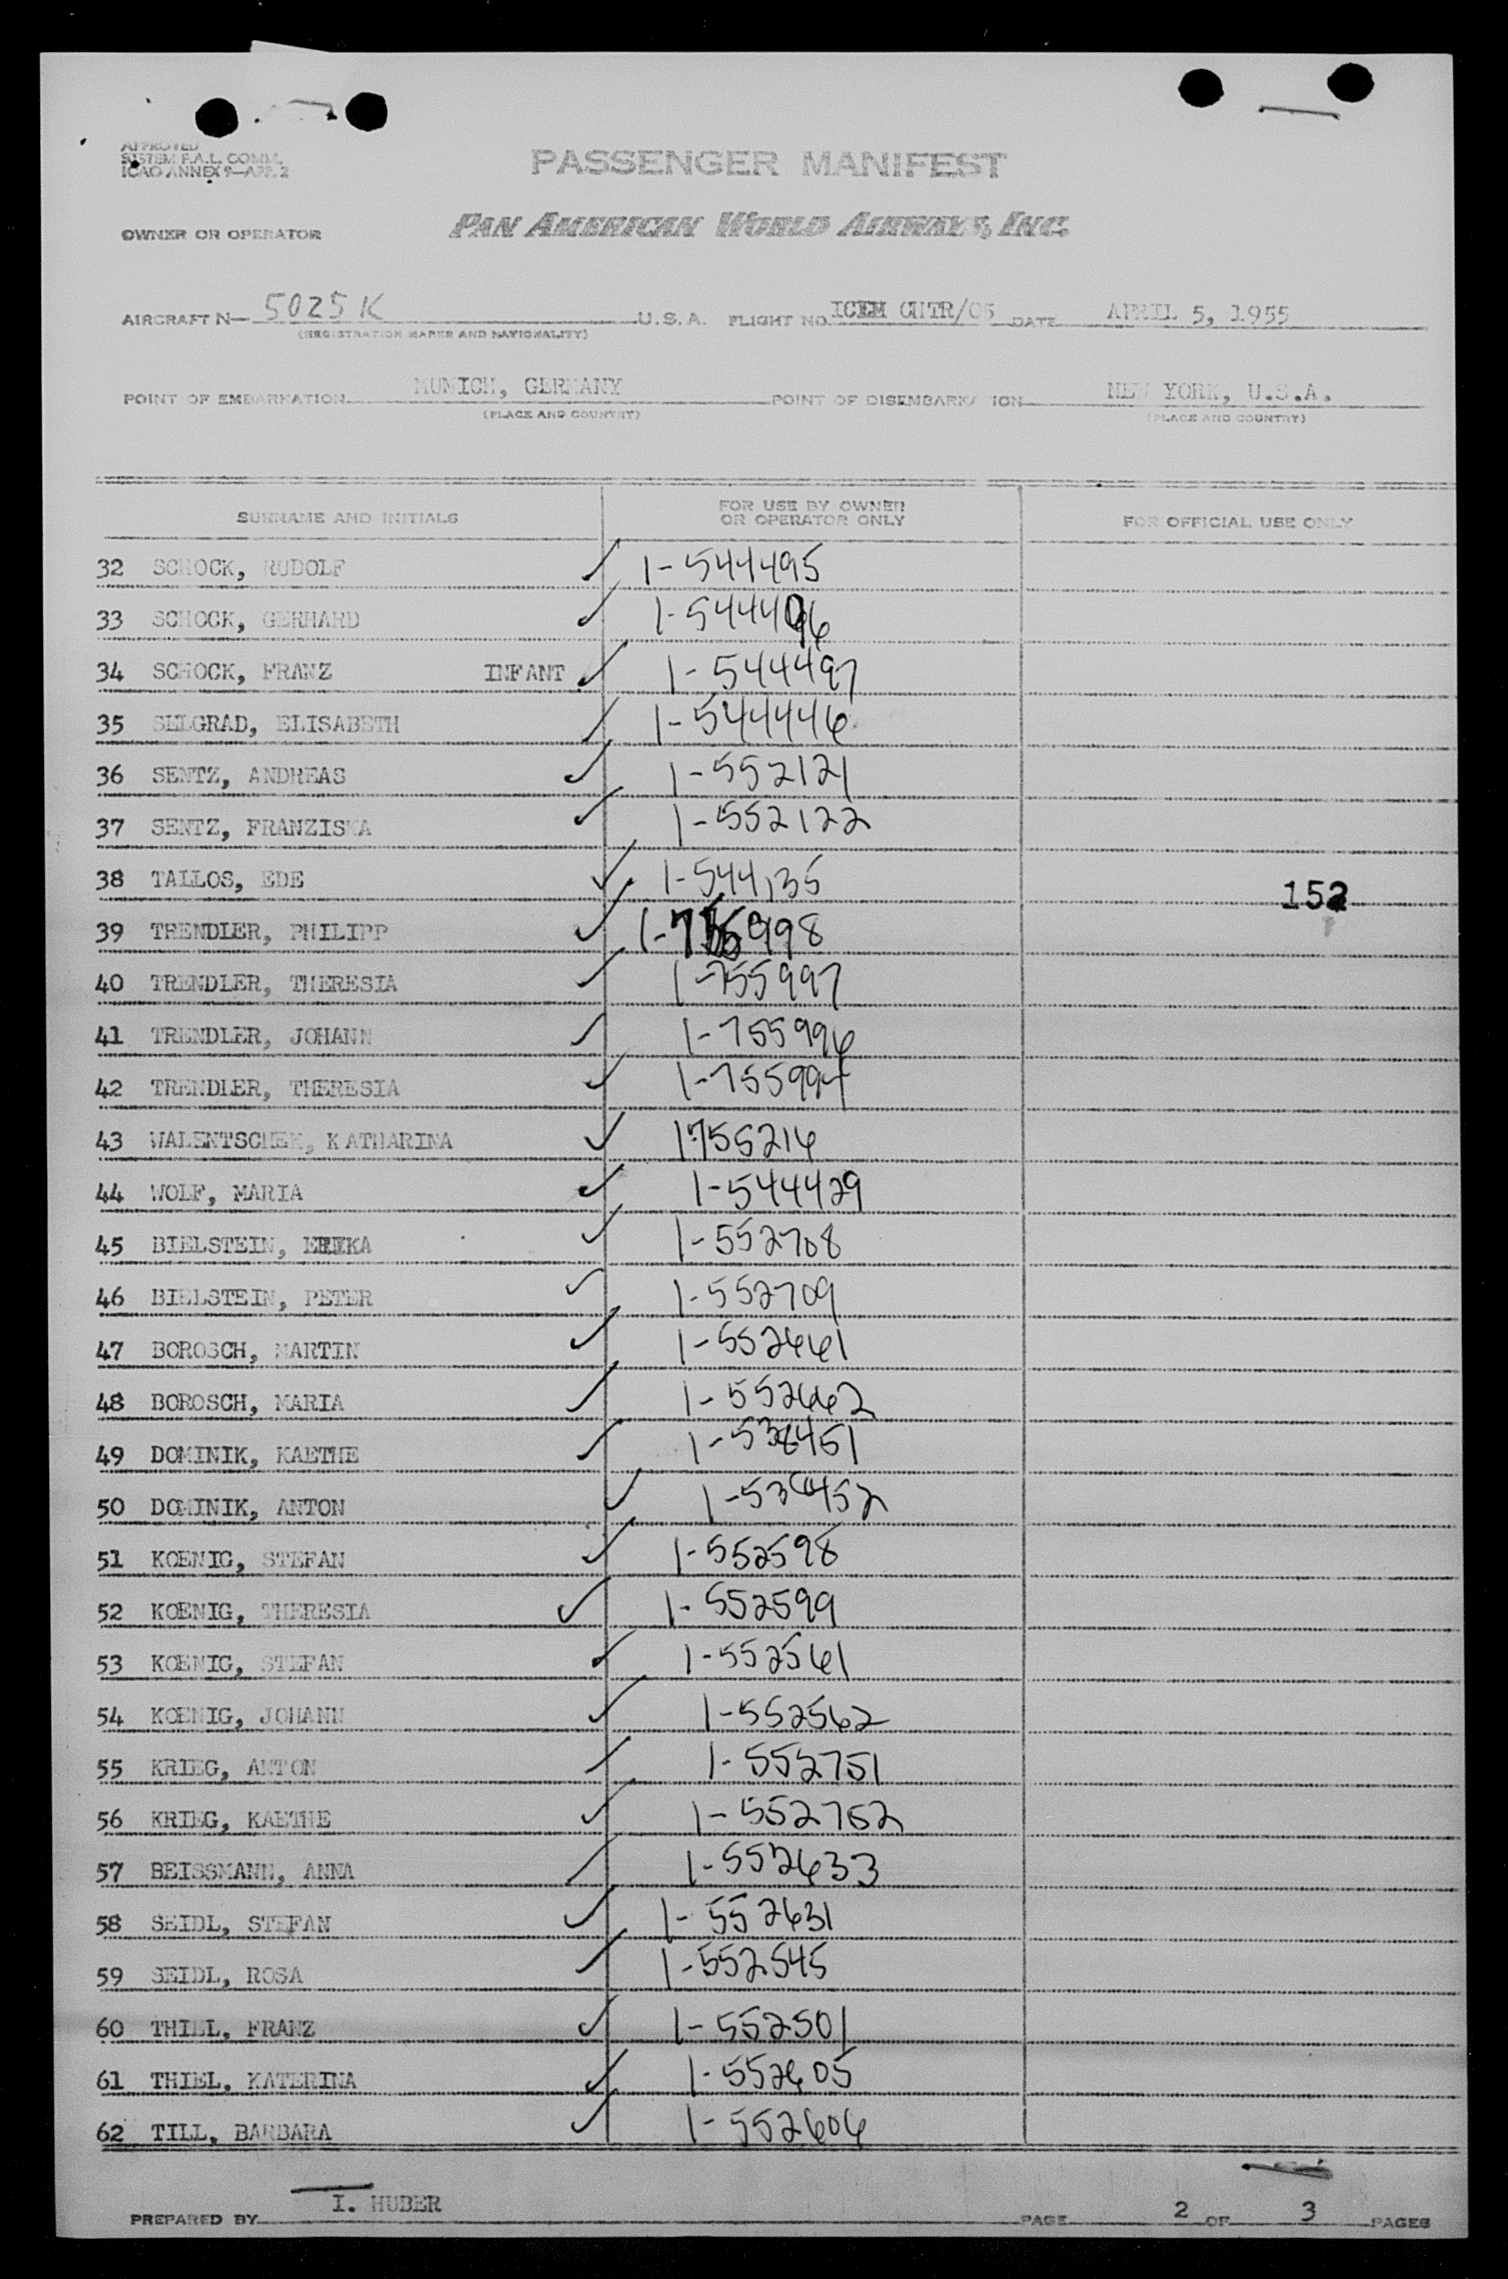 APPROVED
SISTEM F.A.L. COMM.
ICAO ANNEX 9—APP. 2
PASSENGER MANIFEST
OWNER OR OPERATOR PAN AMERICAN WORLD AIRWAYS, INC.
AIRCRAFT N— 5025K U.S.A. FLIGHT NO. ICEM CHTR/05 DATE APRIL 5, 1955
(REGISTRATION MARKS AND NATIONALITY)
POINT OF EMBARKATION MUNICH, GERMANY POINT OF DISEMBARKATION NEW YORK, U.S.A.
(PLACE AND COUNTRY) (PLACE AND COUNTRY)
SURNAME AND INITIALS FOR USE BY OWNER OR OPERATOR ONLY FOR OFFICIAL USE ONLY
32 SCHOCK, RUDOLF 1-544495
33 SCHOCK, GERHARD 1-544496
34 SCHOCK, FRANZ INFANT 1-544497
35 SELGRAD, ELISABETH 1-544446
36 SENTZ, ANDREAS 1-552121
37 SENTZ, FRANZISKA 1-552122
38 TALLOS, EDE 1-544135 152
39 TRENDLER, PHILIPP 1-755998
40 TRENDLER, THERESIA 1-755997
41 TRENDLER, JOHANN 1-755996
42 TRENDLER, THERESIA 1-755994
43 WALENTSCHEK, KATHARINA 1755216
44 WOLF, MARIA 1-544429
45 BIELSTEIN, ERIKA 1-552708
46 BIELSTEIN, PETER 1-552709
47 BOROSCH, MARTIN 1-552661
48 BOROSCH, MARIA 1-552662
49 DOMINIK, KAETHE 1-538451
50 DOMINIK, ANTON 1-538452
51 KOENIG, STEFAN 1-552598
52 KOENIG, THERESIA 1-552599
53 KOENIG, STEFAN 1-552561
54 KOENIG, JOHANN 1-552562
55 KRIEG, ANTON 1-552751
56 KRIEG, KAETHE 1-552752
57 BEISSMANN, ANNA 1-552633
58 SEIDL, STEFAN 1-552631
59 SEIDL, ROSA 1-552545
60 THILL, FRANZ 1-552501
61 THIEL, KATERINA 1-552605
62 TILL, BARBARA 1-552606
PREPARED BY I. HUBER PAGE 2 OF 3 PAGES